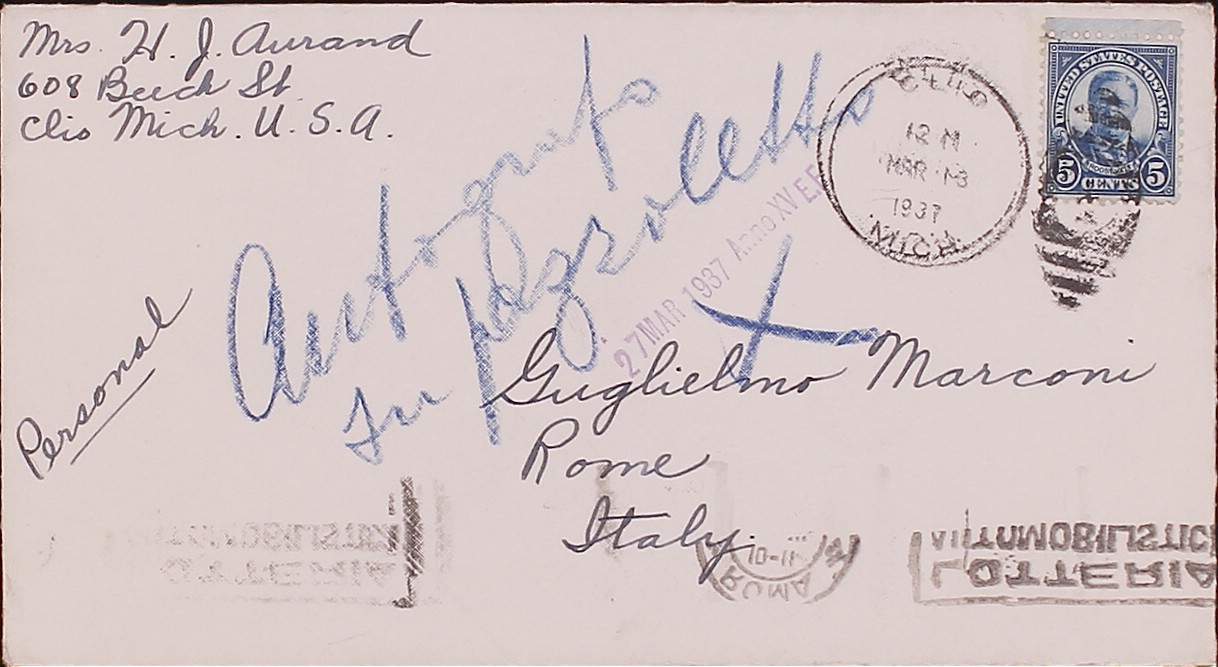 Mrs. H. J. Aurand
608 Beech St.
Clio Mich. U. S. A.
UNITED STATES POSTAGE
ROOSEVELT
5 CENTS 5
CLIO
12 M
MAR 13
1937
MICH.
27 MAR 1937 Anno XV EF
Autografo
Personal
Guglielmo Marconi
Rome
Italy.
10-11
ROMA
LOTTERIA
AUTOMOBILISTICA
LOTTERIA
AUTOMOBILISTIC